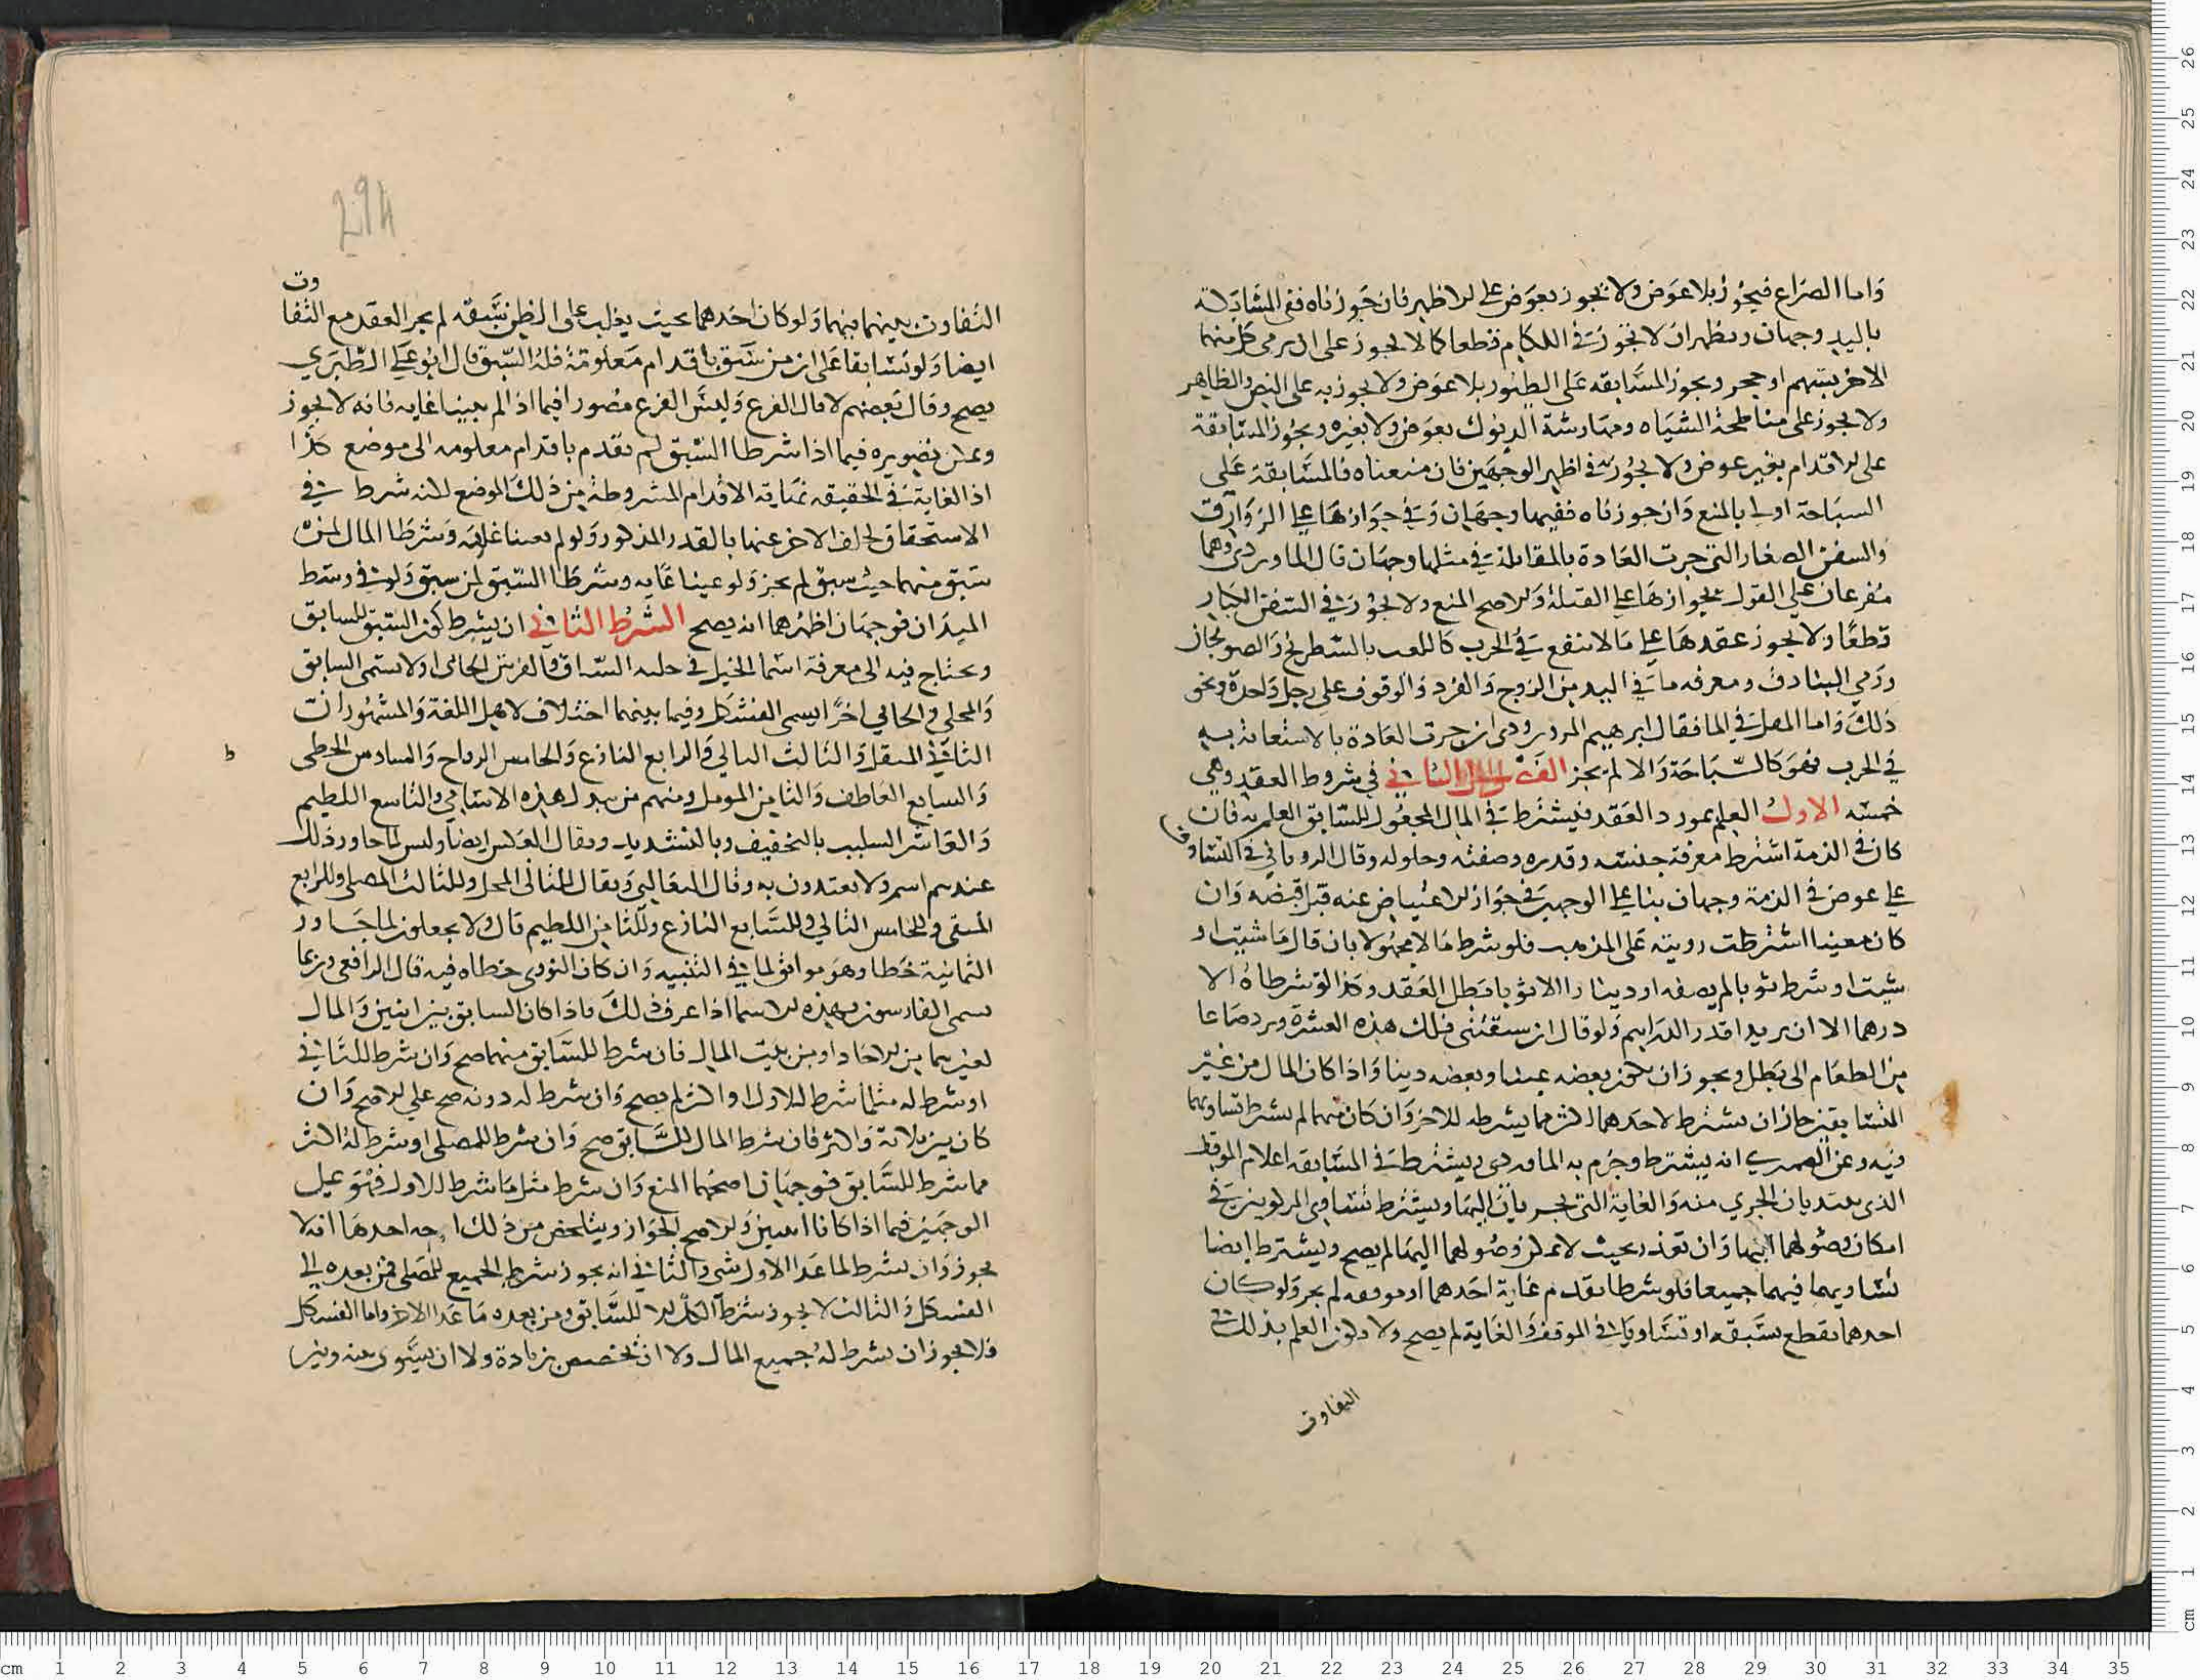 واما الصراع فيجوز بلا عوض ولا يجوز بعوض على الاظهر فان جوزناه ففي المشابكة
باليد وجهان ويظهر ان لا تجوز في اللكام قطعا كما لا يجوز على ان يرمي كل منهما
الاخر بسهم او حجر ويجوز المسابقه على الطيور بلا عوض ولا يجوز به على النص والظاهر
ولا يجوز على مناطحة الشياه ومهارشة الديوك بعوض ولا بغيره ويجوز المسابقة
على الاقدام بغير عوض ولا يجوز به في اظهر الوجهين فان منعناه فالمسابقة على
السباحة اولى بالمنع وان جوزناه ففيها وجهان وفي جوازها على الزوارق
والسفن الصغار التي جرت العادة بالمقابلة في مثلها وجهان قال الماوردي وهما
مفرعان على القول بجوازها على الفيلة والاصح المنع ولا يجوز في السفن الكبار
قطعا ولا يجوز عقدها على ما لا ينفع في الحرب كاللعب بالشطرنج والصولجان
ورمي البنادق ومعرفه ما في اليد من الزوج والفرد والوقوف على رجل واحدة ونحو
ذلك واما المقل في الما فقال ابرهيم المروروذي ان جرت العادة بالاستعانة به
في الحرب فهو كالسباحة والا لم يجز الفصل الثاني في شروط العقد وهي
خمسه الاول العلم بمورد العقد فيشترط في المال المجعول للسابق العلم به فان
كان في الذمة اشترط معرفة جنسه وقدره وصفته وحلوله وقال الروياني في التساوق
على عوض في الذمة وجهان بناء على الوجهين في جواز الاعتياض عنه قبل قبضه وان
كان معينا اشترطت رويته على المذهب فلو شرط مالا مجهولا بان قال ما شيت او
شيت او شرط ثوبا لم يصفه او دينارا الا ثوبا بطل العقد وكذا لو شرطاه الا
درهما الا ان يريد اقدر الدراهم ولو قال ان سبقتني فلك هذه العشرة وترد صاعا
من الطعام الي بطل ويجوز ان يكون بعضه عينا وبعضه دينا واذا كان المال من غير
المتسابقين جاز ان يشترط لاحدهما اكثر مما يشرطه للاخر وان كان منهما لم يشرط تساويهما
فيه وعن الصيمري انه يشترط وجزم به الماوردي ويشترط في المسابقه اعلام الموقف
الذي يبتديان الجري منه والغاية التي يجريان اليها ويشترط تساوي المركوبين في
امكان وصولهما اليها وان تعذر بحيث لا يمكن وصولهما اليها لم يصح ويشترط ايضا
تساويهما فيهما جميعا فلو شرطا تقدم غاية احدهما او موقفه لم يجز ولو كان
احدهما يقطع بسبقه او تساويا في الموقف والغاية لم يصح ولا يكون العلم بذلك في
التفاوت
294
وت
التفاوت بينهما فيهما ولو كان احدهما بحيث يغلب على الظن سبقه لم يجز العقد مع التفا
ايضا ولو تسابقا على ان من سبق باقدام معلومة فله السبق قال ابو علي الطبري
يصح وقال بعضهم لا قال الفرع وليس الفرع مصورا فيما اذا لم يعينا غايه فانه لا يجوز
ويمكن تصويره فيما اذا شرطا السبق لمن تقدم باقدام معلومه الى موضع كذا
اذ الغاية في الحقيقه نهاية الاقدام المشروطة من ذلك الموضع لكنه شرط في
الاستحقاق تخلف الاخر عنها بالقدر المذكور ولو لم يعينا غاية وشرطا المال لمن
سبق منهما حيث سبق لم يجز ولو عينا غايه وشرطا السبق لمن سبق ولو في وسط
الميدان فوجهان اظهرهما انه يصح الشرط الثاني ان يشرط كون السبق للسابق
ويحتاج فيه الى معرفة اسما الخيل في حلبه السباق فالفرس الجائي اولا يسمى السابق
والمجلي والجائي اخرا يسمى الفسكل وفيما بينهما اختلاف لاهل اللغة والمشهور ان
الثاني المصلي والثالث التالي والرابع البارع والخامس المرتاح والسادس الحظي
ط
والسابع العاطف والثامن المومل ومنهم من يبدل هذه الاسامي والتاسع اللطيم
والعاشر السكيت بالتخفيف وبالتشديد ويقال الفسكل ايضا وليس لما جاوز ذلك
عندهم اسم ولا يعتدون به وقال الثعالبي ويقال للثاني المجلي وللثالث المصلي وللرابع
المسلي وللخامس التالي وللسابع البارع وللثامن اللطيم قال ولا يجعلون لما جاوز
الثمانية حظا وهو موافق لما في التنبيه وان كان النووي خطاه فيه قال الرافعي وربما
سمي الفارسون بهذه الاسما اذا عرف ذلك فاذا كان السابق بين اثنين والمال
لغيرهما من الاحاد او من بيت المال فان شرط للسابق منهما صح وان شرط للثاني
او شرط له مثل ما شرط للاول او اكثر لم يصح وان شرط له دونه صح على الاصح وان
كان بين ثلاثة واكثر فان شرط المال للسابق صح وان شرط للمصلي او شرط له اكثر
مما شرط للسابق فوجهان اصحهما المنع وان شرط مثل ما شرط للاول فهو على
الوجهين فيما اذا كانا اثنين والاصح الجواز ويتلخص من ذلك اوجه احدها انه لا
يجوز وان يشرط لما عدا الاول شي والثاني انه يجوز شرط الجميع للمصلي فمن بعده الى
الفسكل والثالث لا يجوز شرط الكل الا للسابق ومن بعده ما عدا الاخر واما الفسكل
فلا يجوز ان يشرط له جميع المال ولا ان تخصص بزيادة ولا ان يسوى بينه وبين